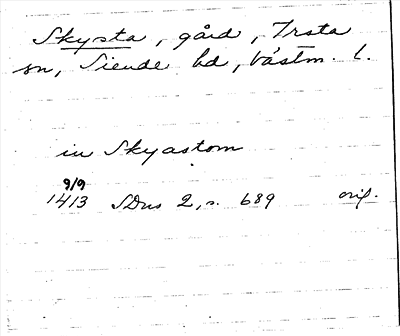 Skysta, gård, Irsta
sn, Siende hd, Västm. l.
in Skyastom
9/9
1413 SDns 2, s. 689 orig.